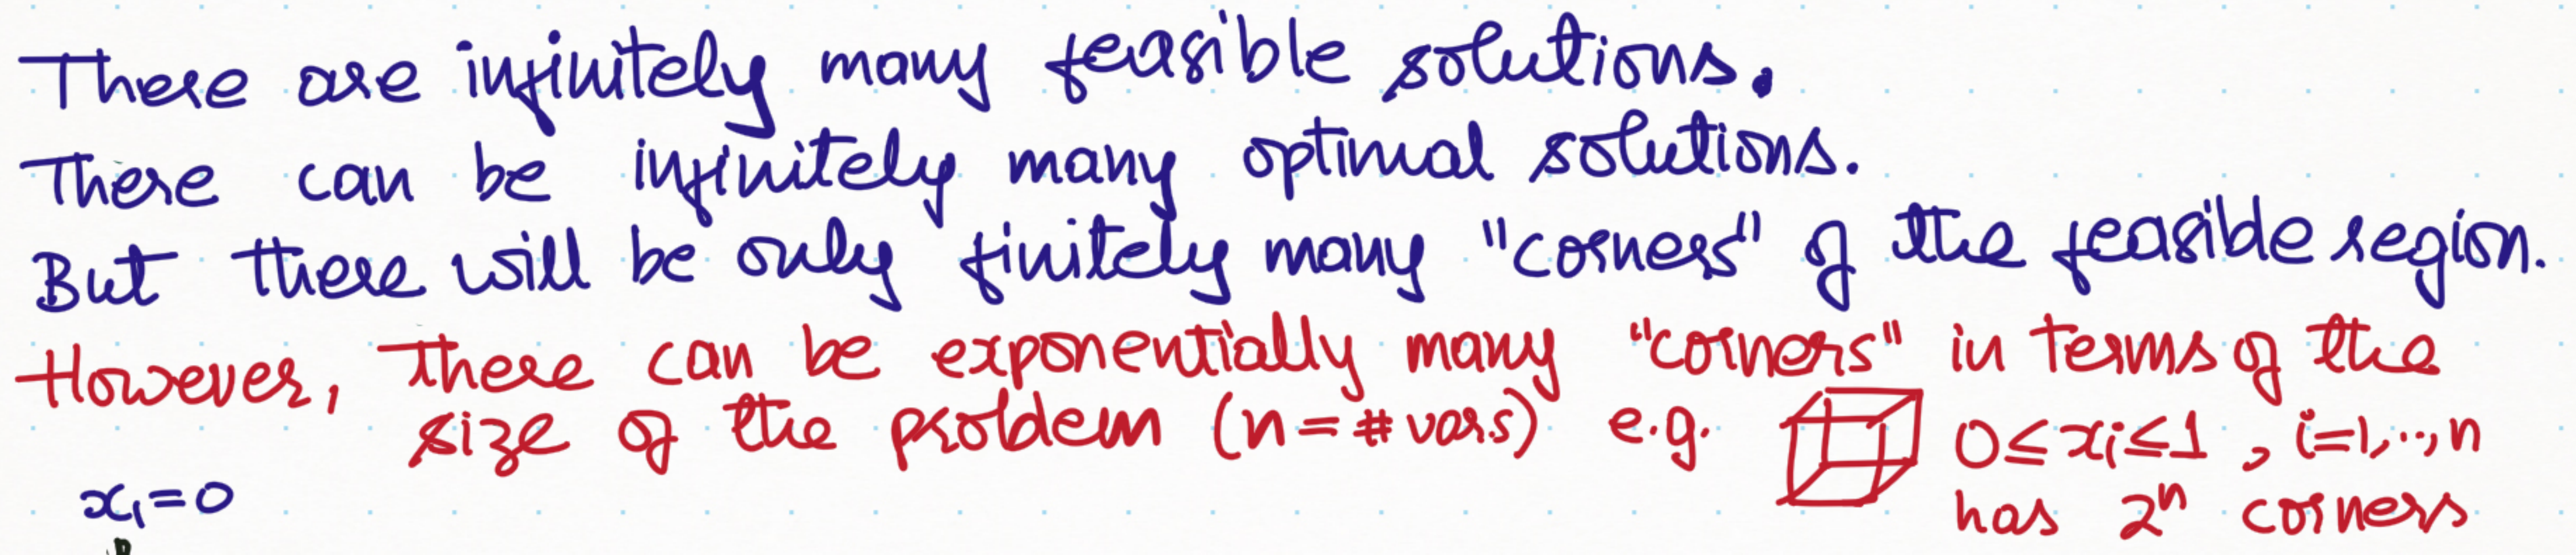 There are infinitely many feasible solutions.
There can be infinitely many optimal solutions.
But there will be only finitely many "corners" of the feasible region.
However, there can be exponentially many "corners" in terms of the
size of the problem (n = # vars.) e.g. 0≤xᵢ≤1, i=1,..,n
has 2ⁿ corners
x₁=0